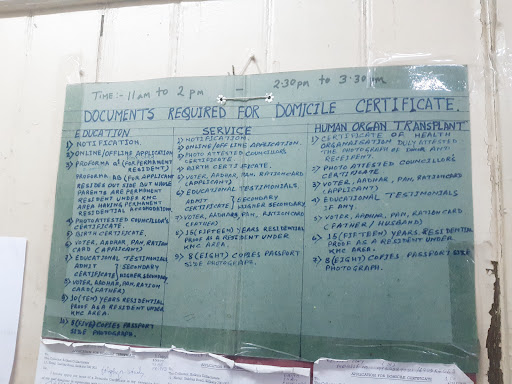 TIME:- 11am to 2 pm - 2:30pm to 3:30pm
DOCUMENTS REQUIRED FOR DOMICILE CERTIFICATE.
EDUCATION
1) NOTIFICATION.
2) ONLINE/OFFLINE APPLICATION
3) PROFORMA A1 (FOR PERMANENT
RESIDENT)
PROFORMA A2 (FOR APPLICANT
RESIDES OUT SIDE BUT WHOSE
PARENTS ARE PERMANENT
RESIDENT UNDER KMC
AREA HAVING PERMANENT
RESIDENTIAL ACCOMODATION)
4) PHOTO ATTESTED COUNCILLOR'S
CERTIFICATE.
5) BIRTH CERTIFICATE.
6) VOTER, AADHAR, PAN, RATION
CARD (APPLICANT)
7) EDUCATIONAL TESTIMONIALS
ADMIT SECONDARY
CERTIFICATE HIGHER SECONDARY
8) VOTER, AADHAR, PAN, RATION
CARD (FATHER)
9) 10 (TEN) YEARS RESIDENTIAL
PROOF AS A RESIDENT UNDER
KMC AREA.
10) 5 (FIVE) COPIES PASSPORT
SIDE PHOTOGRAPH.
SERVICE
1) NOTIFICATION.
2) ONLINE/OFFLINE APPLICATION.
3) PHOTO ATTESTED COUNCILLOR'S
CERTIFICATE.
4) BIRTH CERTIFICATE.
5) VOTER, AADHAR, PAN, RATION CARD
(APPLICANT)
6) EDUCATIONAL TESTIMONIALS.
ADMIT SECONDARY
CERTIFICATE HIGHER SECONDARY
7) VOTER, AADHAR, PAN, RATION CARD
(FATHER)
8) 15 (FIFTEEN) YEARS RESIDENTIAL
PROOF AS A RESIDENT UNDER
KMC AREA.
9) 8 (EIGHT) COPIES PASSPORT
SIDE PHOTOGRAPH.
HUMAN ORGAN TRANSPLANT
1) CERTIFICATE OF HEALTH
ORGANISATION DULY ATTESTED
THE PHOTOGRAPH OF
RECIPIENT.
2) PHOTO ATTESTED COUNCILLOR'S
CERTIFICATE
3) VOTER, AADHAR, PAN, RATION CARD
(APPLICANT)
4) EDUCATIONAL TESTIMONIALS
IF ANY
5) VOTER, AADHAR, PAN, RATION CARD
(FATHER / HUSBAND)
6) 15 (FIFTEEN) YEARS RESIDENTIAL
PROOF AS A RESIDENT UNDER
KMC AREA.
7) 8 (EIGHT) COPIES PASSPORT SIDE
PHOTOGRAPH.